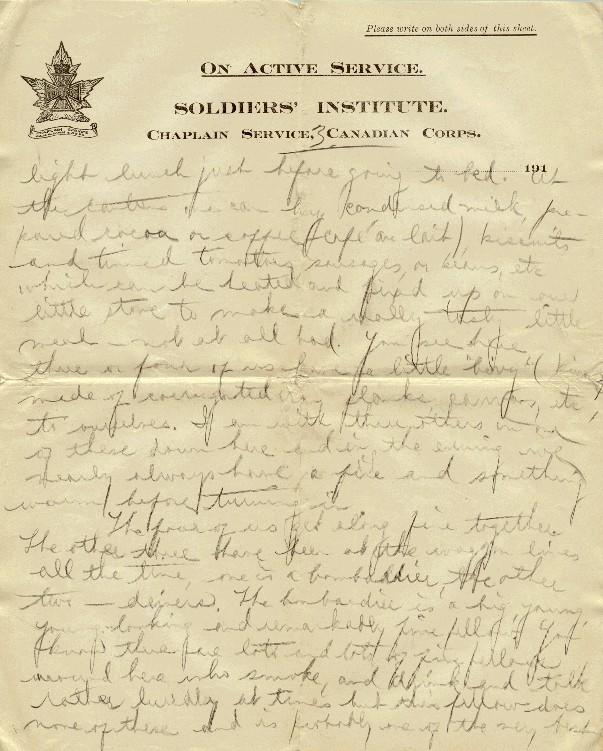 Please write on both sides of this sheet.
ON ACTIVE SERVICE.
SOLDIERS' INSTITUTE.
CHAPLAIN SERVICE, CANADIAN CORPS.
3
191
light lunch just before going to bed. At
the canteen we can buy condensed milk, pre-
pared cocoa or coffee (café au lait), biscuits
and tinned tomatoes, sausages, or beans, etc
which can be heated and fixed up on our
little stove to make a really tasty little
meal - not at all bad. You see here,
three or four of us have a little "bivy" (
made of corrugated iron, planks, canvas, etc)
to ourselves. I am with three others in one
of these down here and in the evening we
nearly always have a fire and something
warm before turning in.
The four of us get along fine together.
The other three have been at the wagon lines
all the time, one is a bombardier, the other
two — drivers. The bombardier is a big, young,
young-looking and remarkably fine fellow. Of
there are lots and lots of fine fellows
here who smoke, and drink and talk
rather luridly at times but this fellow does
none of these and is probably one of the very